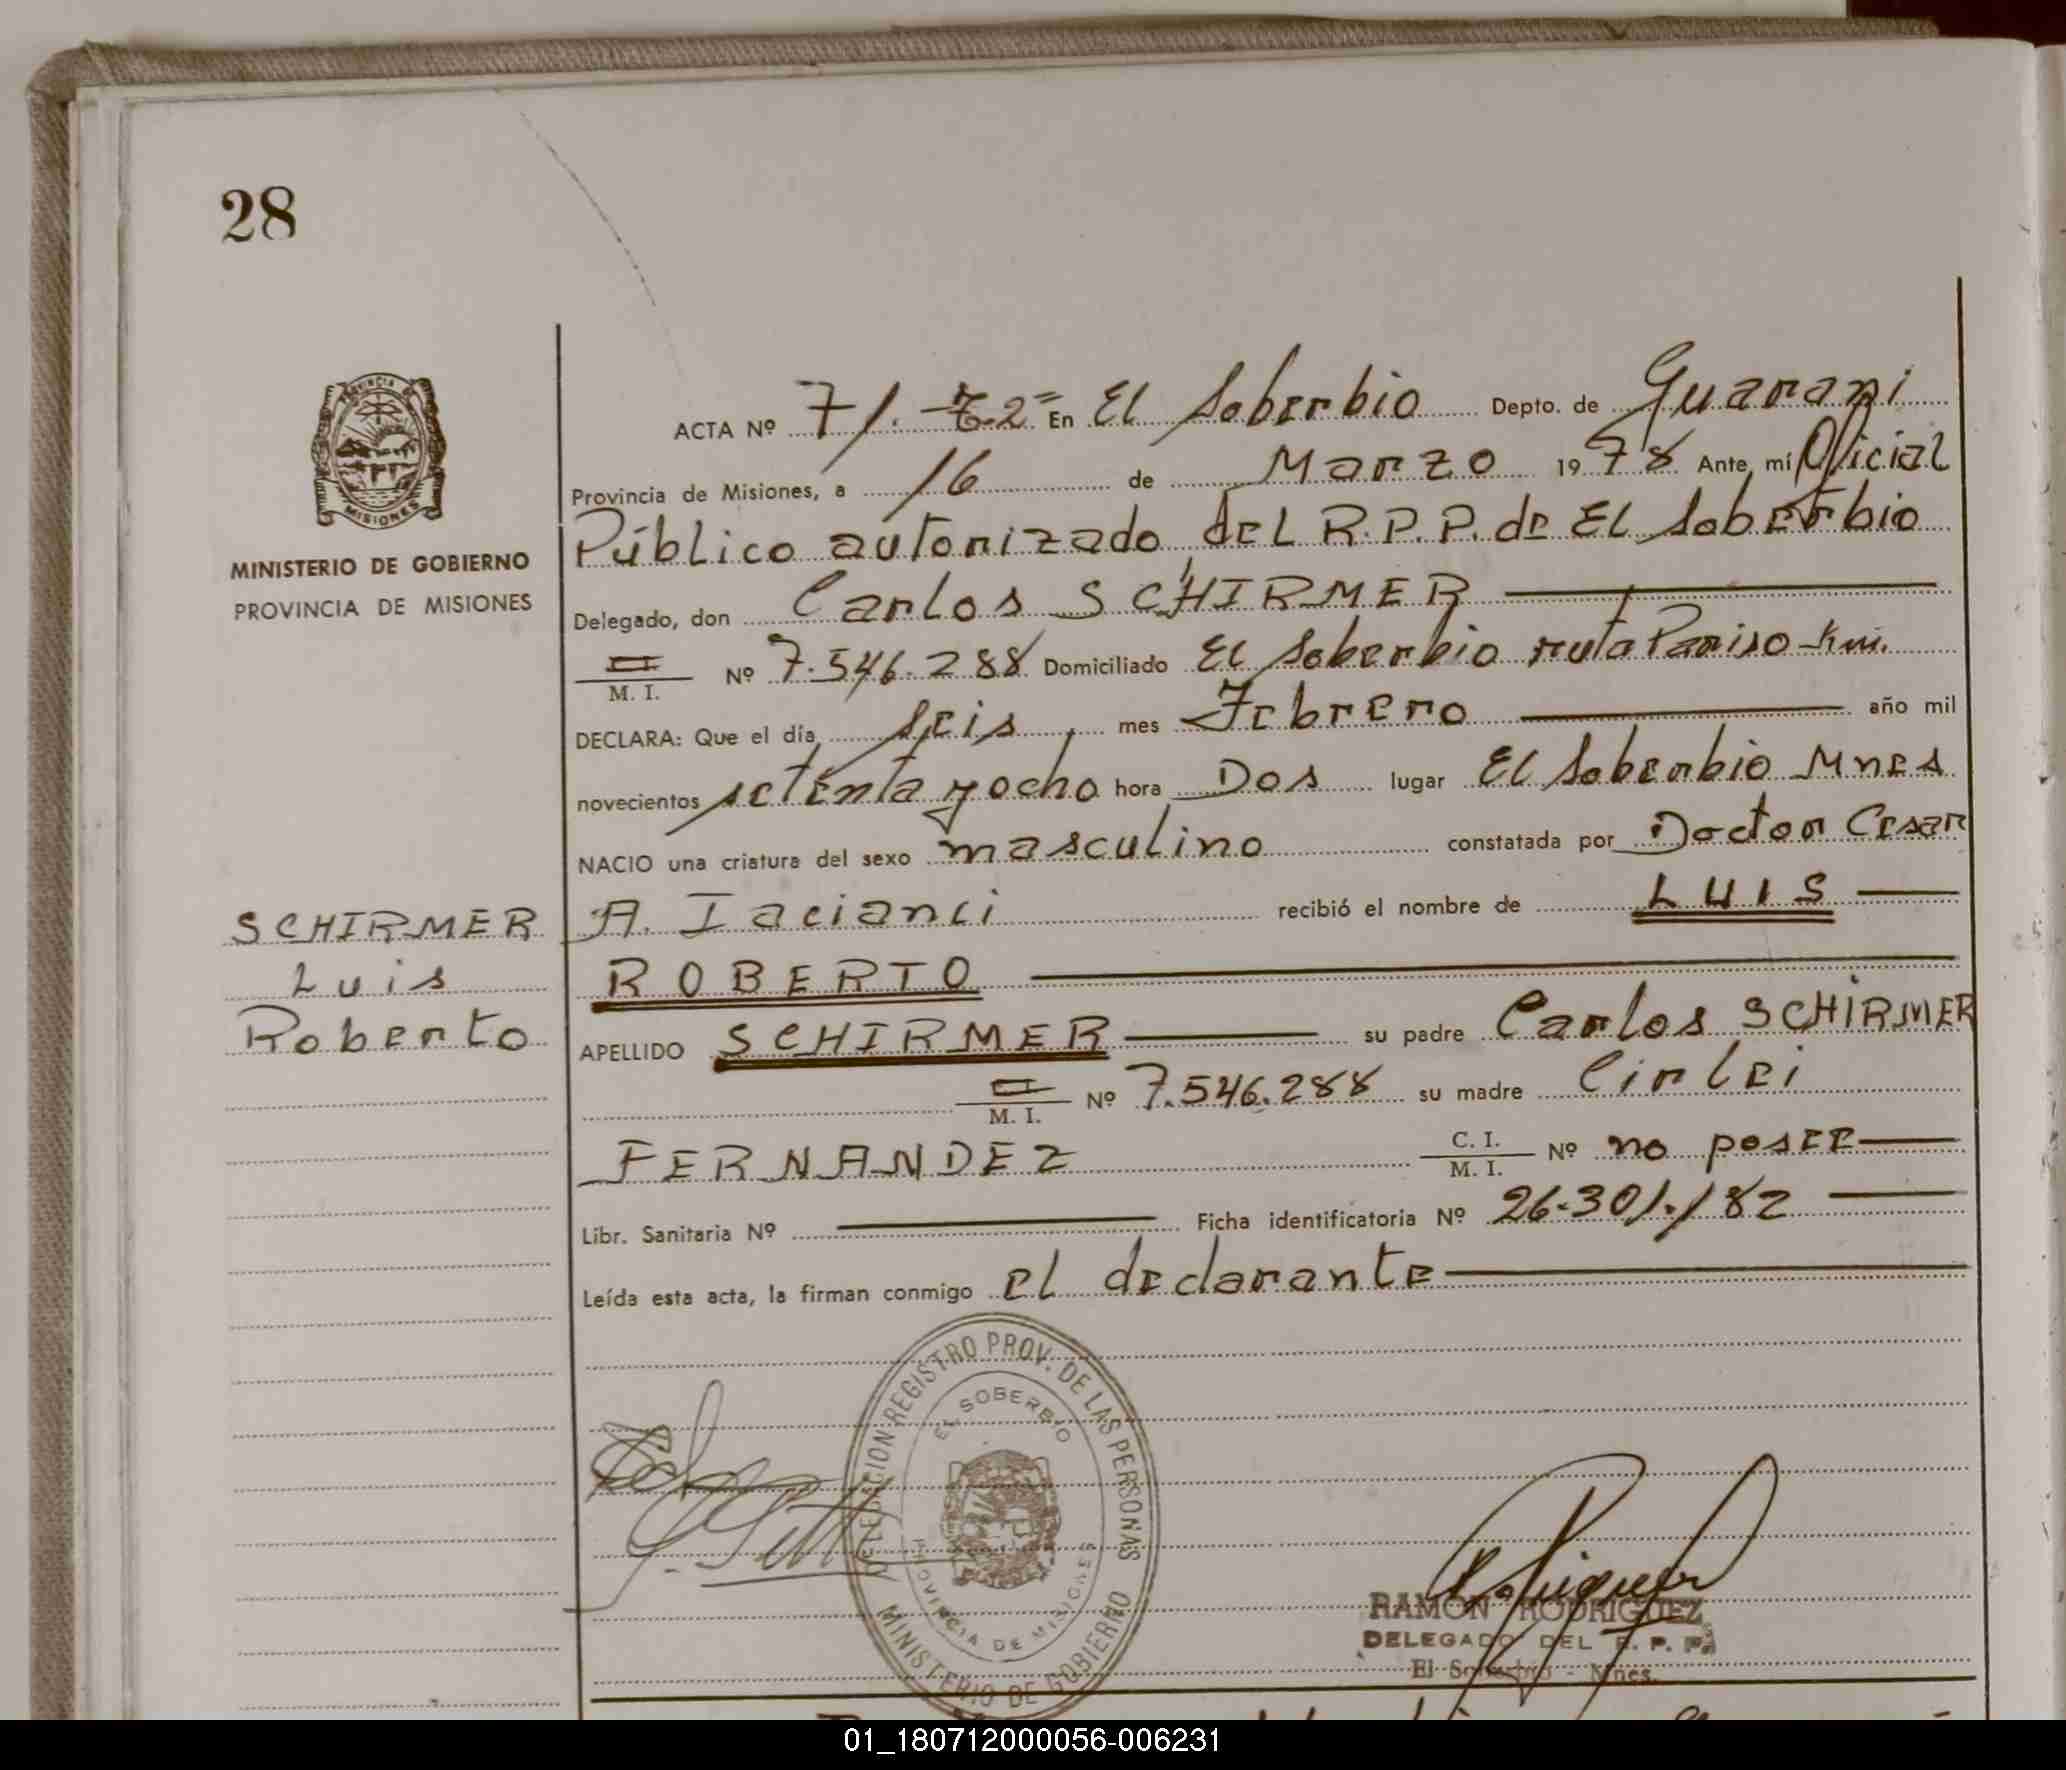 28
PROVINCIA
MISIONES
MINISTERIO DE GOBIERNO
PROVINCIA DE MISIONES
SCHIRMER
Luis
Roberto
ACTA Nº 71. T.2º En El Soberbio Depto. de Guarani
Provincia de Misiones, a 16 de Marzo 1978 Ante mí Oficial
Público autorizado del R.P.P. de El Soberbio
Delegado, don Carlos SCHIRMER
M. I. Nº 7.546.288 Domiciliado El Soberbio ruta Pariso Km.
DECLARA: Que el día seis mes Febrero año mil
novecientos setenta y ocho hora Dos lugar El Soberbio Mnes
NACIO una criatura del sexo masculino constatada por Doctor Cesar
A. Iacianci recibió el nombre de LUIS
ROBERTO
APELLIDO SCHIRMER su padre Carlos SCHIRMER
M. I. Nº 7.546.288 su madre Cirlei
FERNANDEZ C. I. M. I. Nº no posee
Libr. Sanitaria Nº Ficha identificatoria Nº 26.301.182
Leída esta acta, la firman conmigo el declarante
DELEGACION REGISTRO PROV. DE LAS PERSONAS
EL SOBERBIO
PROVINCIA DE MISIONES
MINISTERIO DE GOBIERNO
RAMON RODRIGUEZ
DELEGADO DEL R. P. P.
El Soberbio - Mnes.
01_180712000056-006231